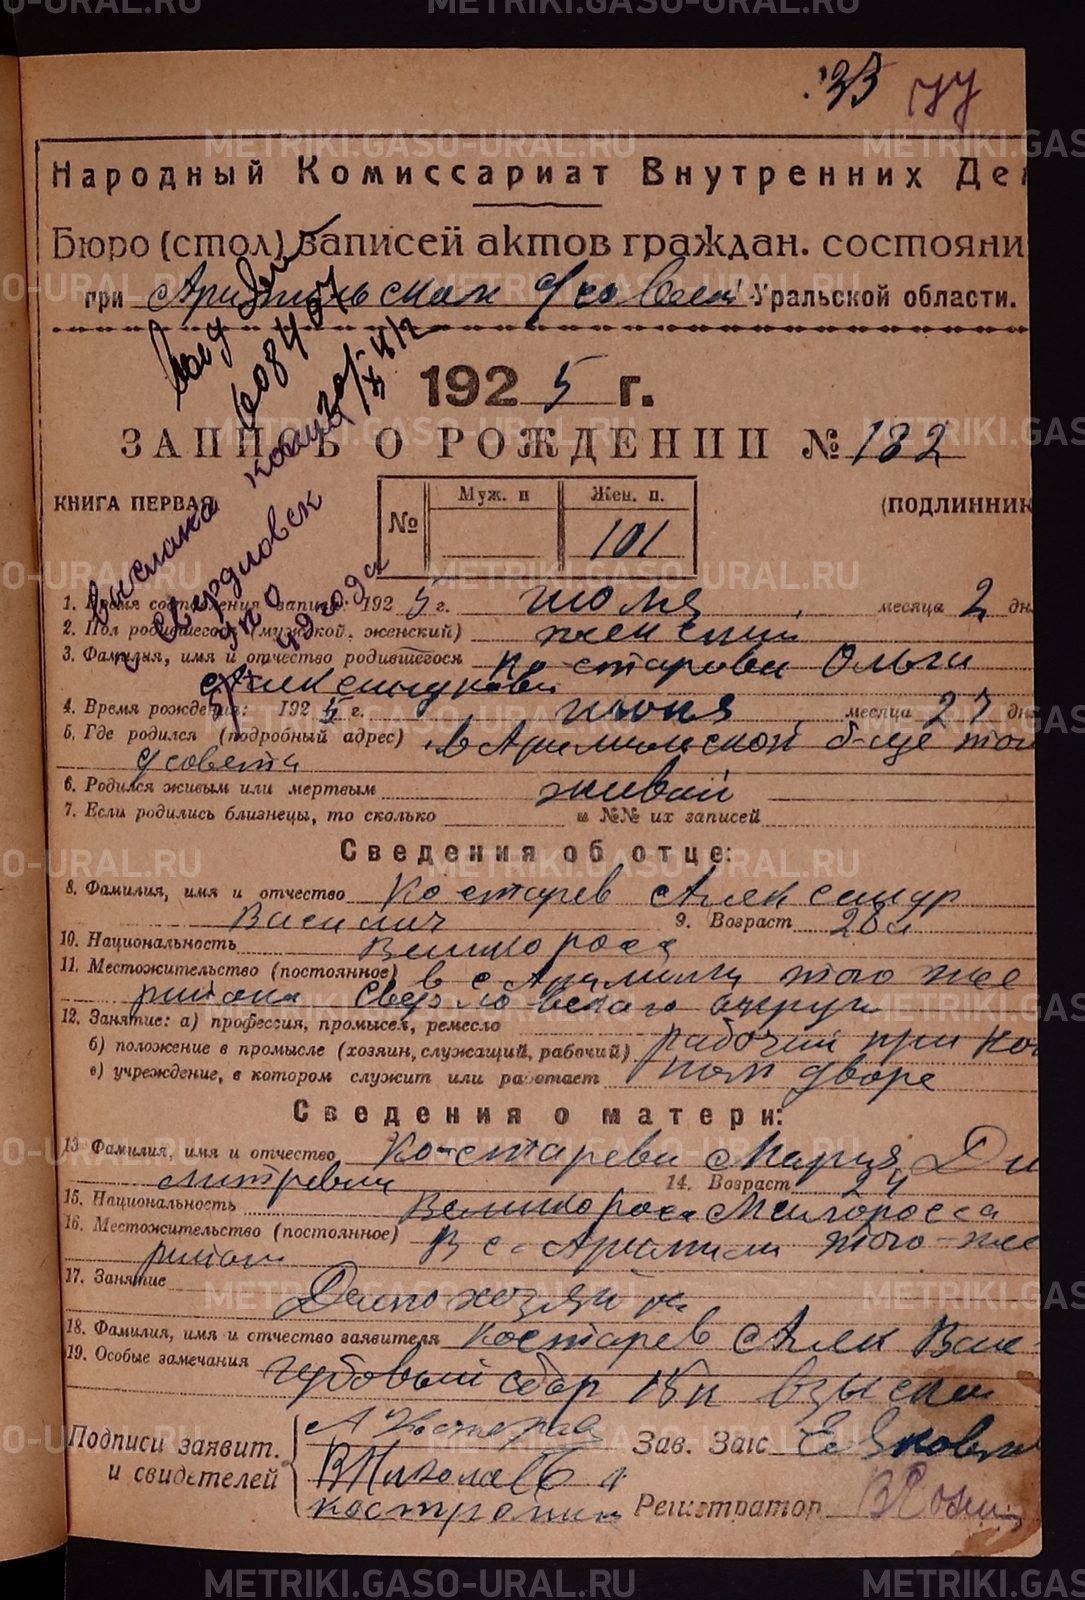 33 44
Народный Комиссариат Внутренних Дел
Бюро (стол) записей актов граждан. состояни
при Арамильском Уральской области.
1925 г.
ЗАПИСЬ О РОЖДЕНИИ № 182
КНИГА ПЕРВАЯ № Муж. п Жен. п. 101 (ПОДЛИННИК
выслана
Свердловск
года
1. Время составления записи: 1925 г. июля месяца 2 дн
2. Пол родившегося (мужской, женский) женский
3. Фамилия, имя и отчество родившегося Костарева Ольга
Александрова
4. Время рождения: 1925 г. июня месяца 27 дн
5. Где родился (подробный адрес) в Арамильской б-це того
совета
6. Родился живым или мертвым живой
7. Если родились близнецы, то сколько и №№ их записей
Сведения об отце:
8. Фамилия, имя и отчество Костарев Александр
Васильич 9. Возраст 28 л
10. Национальность Великоросс
11. Местожительство (постоянное) в с Арамили того же
района Свердловского округа
12. Занятие: а) профессия, промысел, ремесло
б) положение в промысле (хозяин, служащий, рабочий) рабочий при Кон
в) учреждение, в котором служит или работает ном дворе
Сведения о матери:
13 Фамилия, имя и отчество Костарева Мария Ди
митревна 14. Возраст 24
15. Национальность Великоросса Малоросса
16. Местожительство (постоянное) В с Арамили того-же
района
17. Занятие Домохозяйка
18. Фамилия, имя и отчество заявителя Костарев Алек Вас
19. Особые замечания гербовый сбор 15 к взыскан
Подписи заявит. А Костарев Зав. Загс
и свидетелей
Регистратор
METRIKI.GASO-URAL.RU